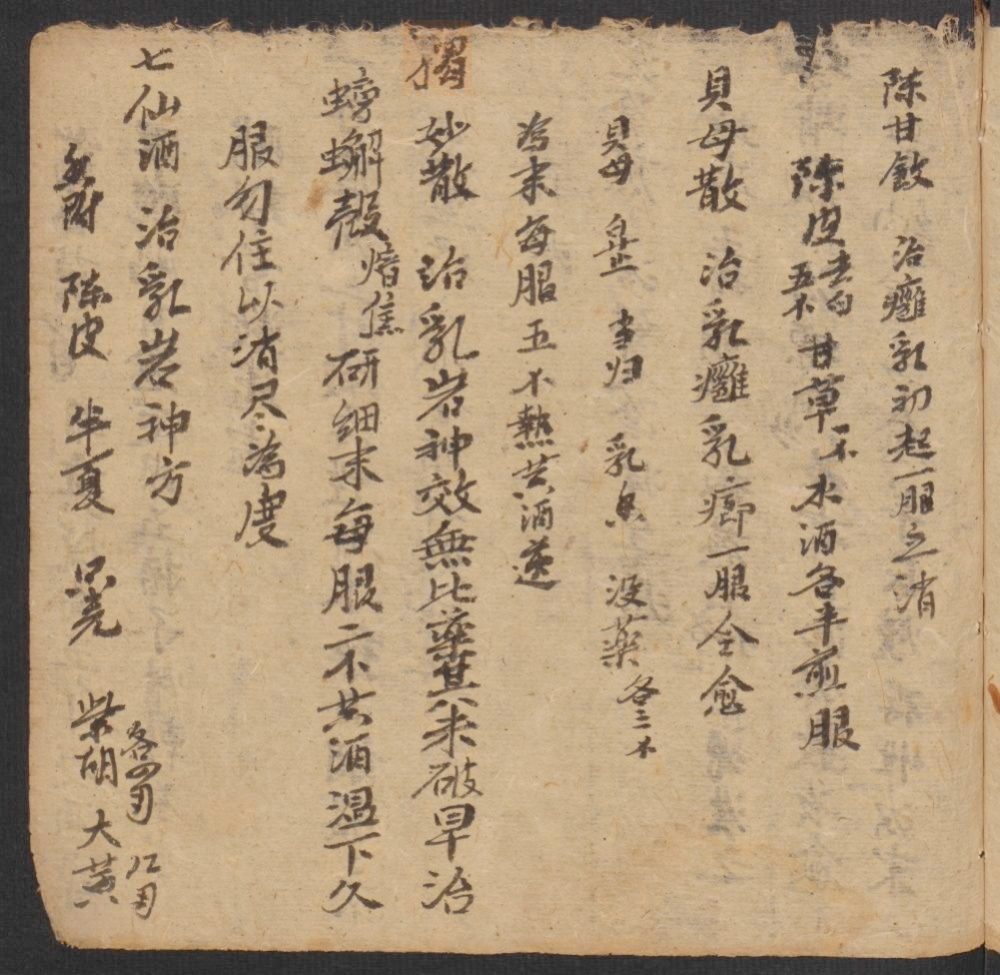 陈甘飲　治癰乳初起一服立消
陈皮去白五不甘草一不水酒各半煎服
貝母散　治乳癰乳癤一服全愈
貝母　白芷　当归　乳香　没藥各二不
為末每服五不熱黄酒送
獨妙散　治乳岩神效無比藥其未破早治
螃蠏殼焙焦研細末每服二不黄酒温下久
服勿住以消尽為度
七仙酒　治乳岩神方
香附　陈皮　半夏　只壳　柴胡各四
大黄